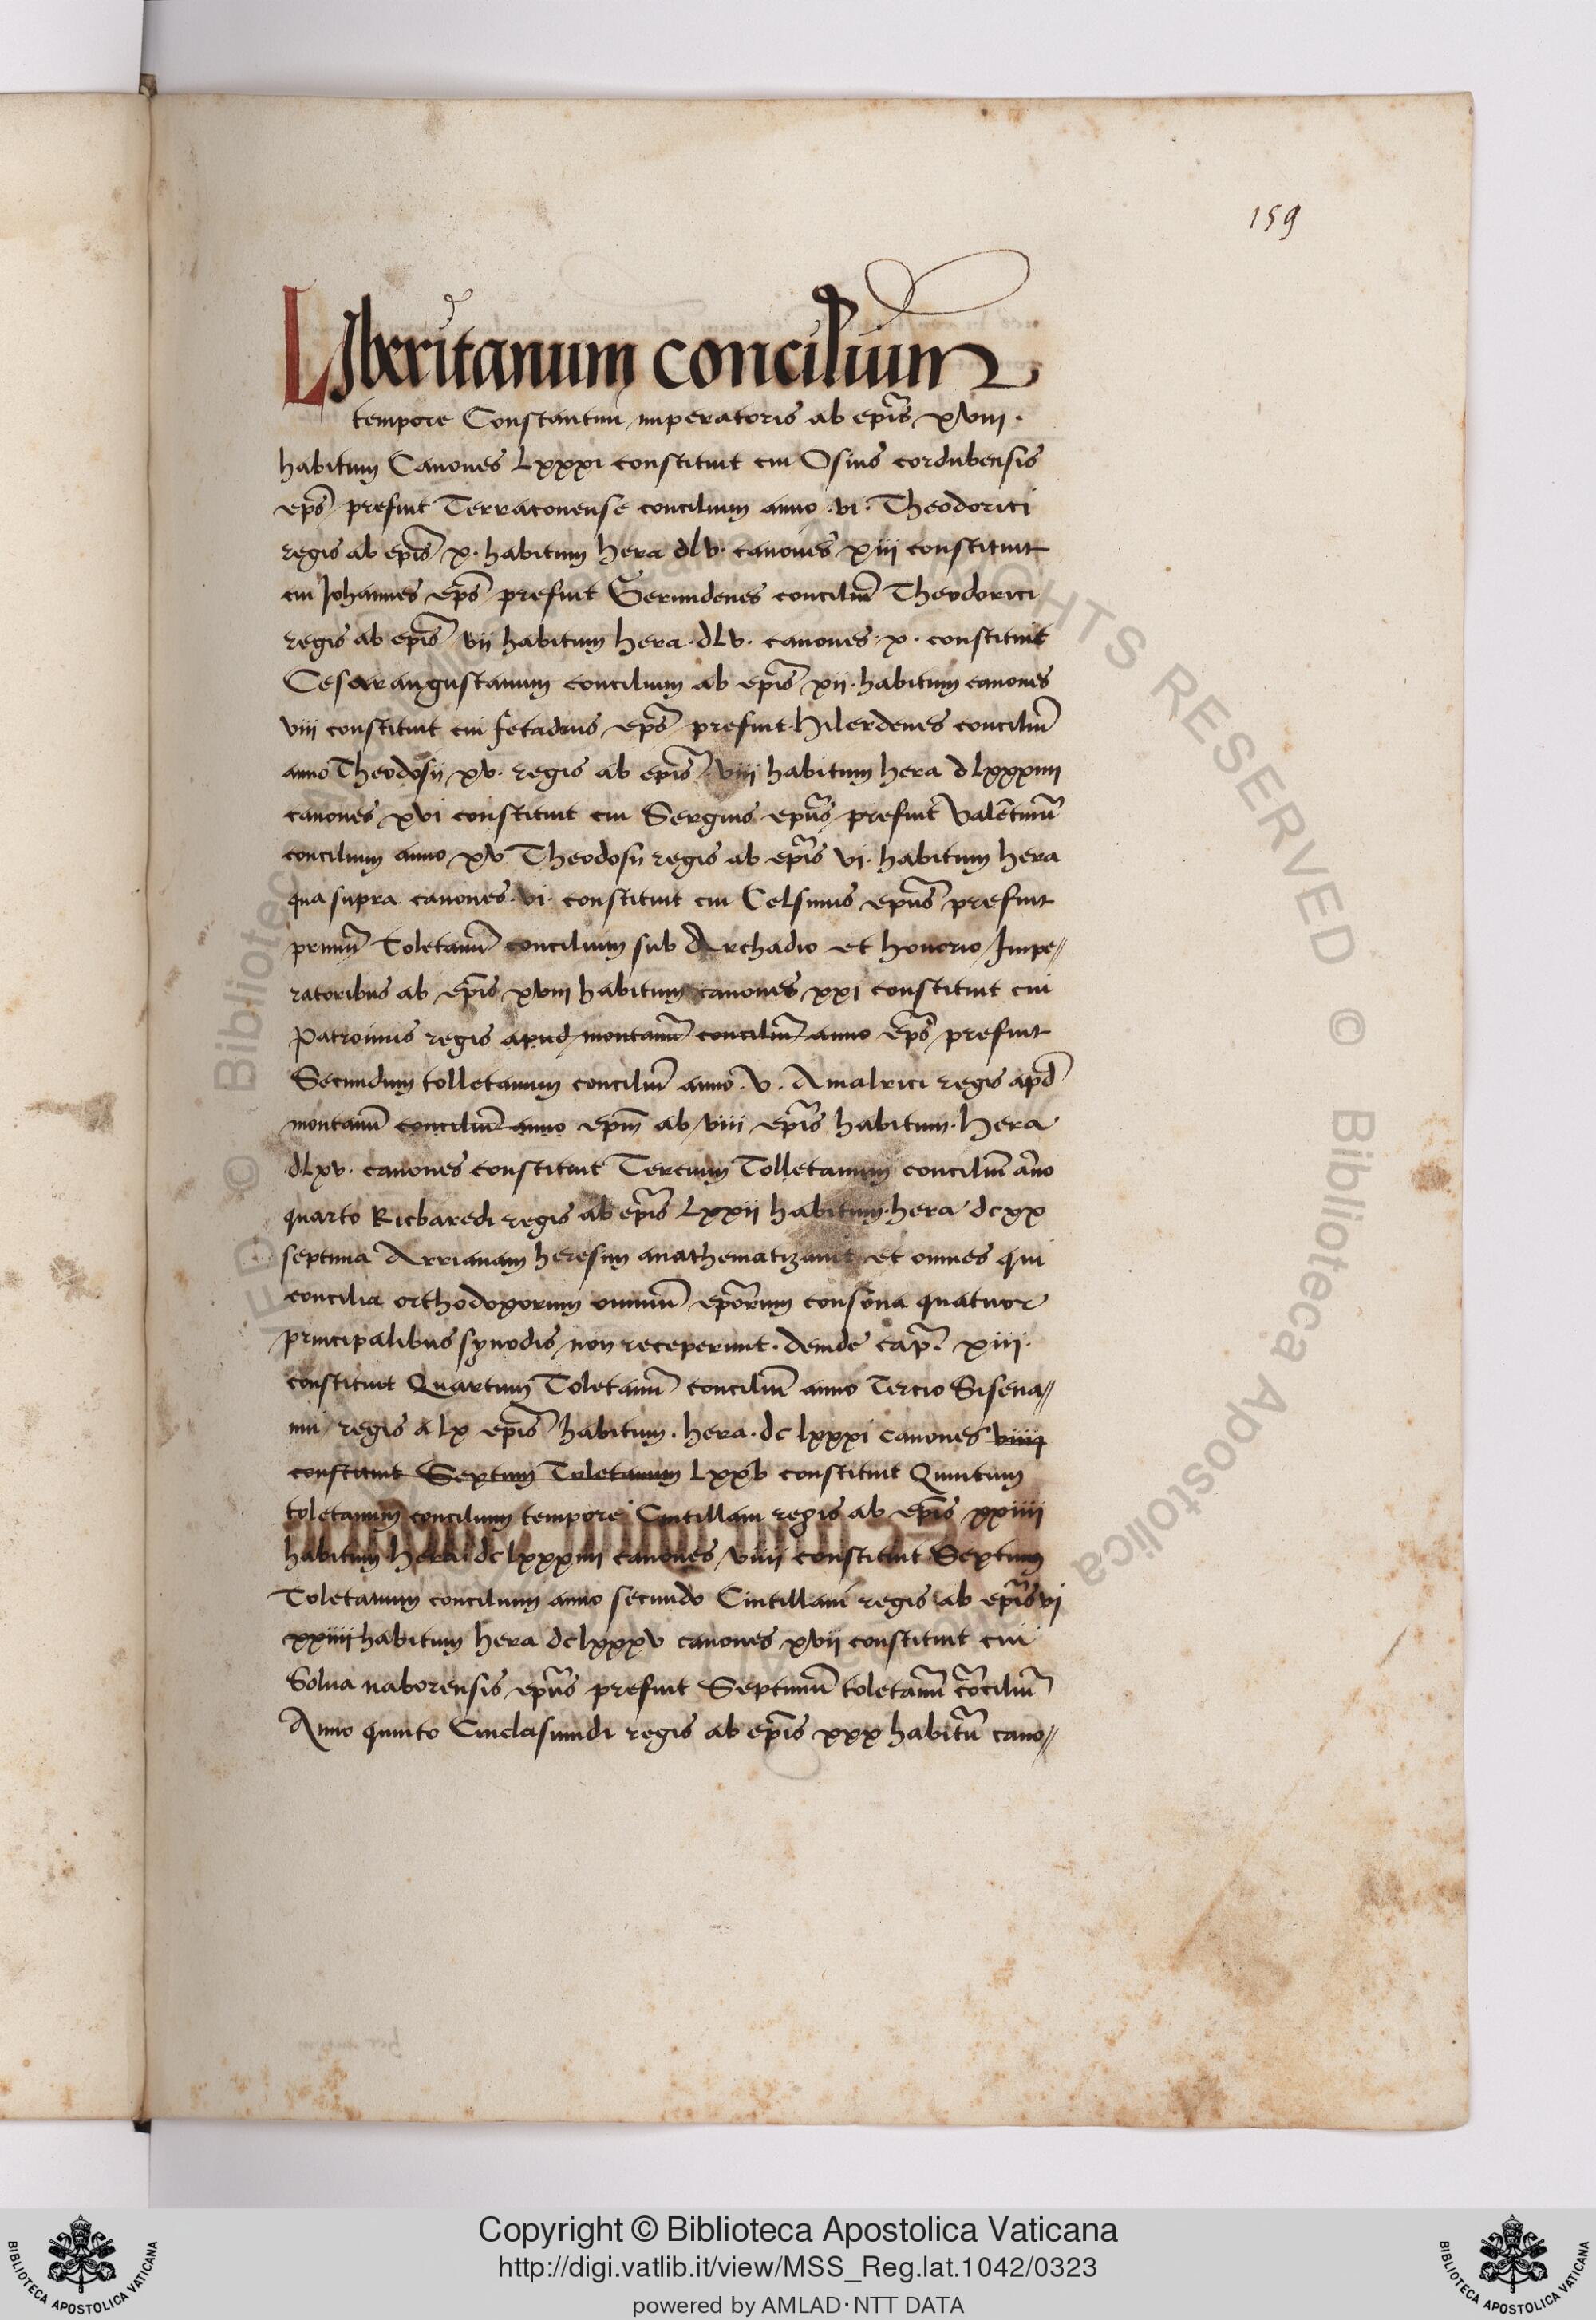 159
LIberitanum concilium
tempore Constantini imperatoris ab epis̃ xviii ·
habitum Canones Lxxxi constituit cui Osius cordubensis
ep̃s prefuit Terraconense concilium anno · vi · Theodorici
regis ab epis̃ x · habitum hera dlv · canones xiii constituit
cui Johannes ep̃s prefuit Gerundenes conciliũ Theodorici
regis ab epis̃ vii habitum hera · dLv · canones · x · constituit
Cesaraugustanum concilium ab epis̃ xii · habitum canones
viii constituit cui fetadius ep̃s prefuit hilerdenes conciliũ
anno Theodosii xv · regis ab epis̃ · viii habitum hera dLxxxiiii
canones xvi constituit cui Sergius epũs prefuit Valẽtinũ
concilium anno xv Theodosii regis ab ep̃is vi · habitum hera
qua supra canones · vi · constituit cui Celsinus epũs prefuit
primũ Toletanũ concilium sub Archadio et honorio Impe//
ratoribus ab ep̃is xviii habitum canones xxi constituit cui
Patroinus regis apud montanũ conciliũ anno ep̃s prefuit
Secundum tolletanum conciliũ anno · v · Amalrici regis apd̃
montanũ conciliũ anno epm̃ ab viii ep̃is habitum · hera
dLxv · canones constituit Tercium Tolletanum conciliũ ãno
quarto Ricbaredi regis ab ep̃is Lxxii habitum · hera dcxx
septima Arrianam heresim anathematizauit et omnes qui
concilia orthodoxorum omniũ epõrum consona quatuor
principalibus synodis non receperunt · deinde cap̃ · xiii ·
constituit Quartum Toletanũ conciliũ anno Tercio Sisena//
ni regis a lx epis̃ habitum · hera · dc lxxxi canones viiii
constituit Sextum Toletanum Lxxv constituit Quintum
toletanum concilium tempore Cintillani regis ab ep̃is xxiiii
habitum hera · dc lxxxiiii canones viiii constituit Sextum
Toletanum concilium anno secundo Cintillani regis ab ep̃is vi
xxiiii habitum hera dclxxxv canones xvii constituit cui
Solua naborensis epũs prefuit Septimũ toletanũ cõciliũ
Anno quinto Cinclasuindi regis ab ep̃is xxx habitũ cano//
Copyright © Biblioteca Apostolica Vaticana
http://digi.vatlib.it/view/MSS_Reg.lat.1042/0323
powered by AMLAD·NTT DATA
BIBLIOTECA APOSTOLICA VATICANA
BIBLIOTECA APOSTOLICA VATICANA